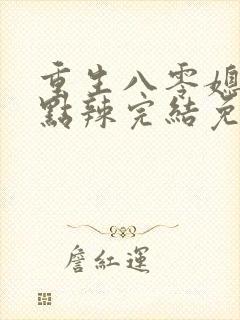 重生八零媳
點辣完結免
詹紅運